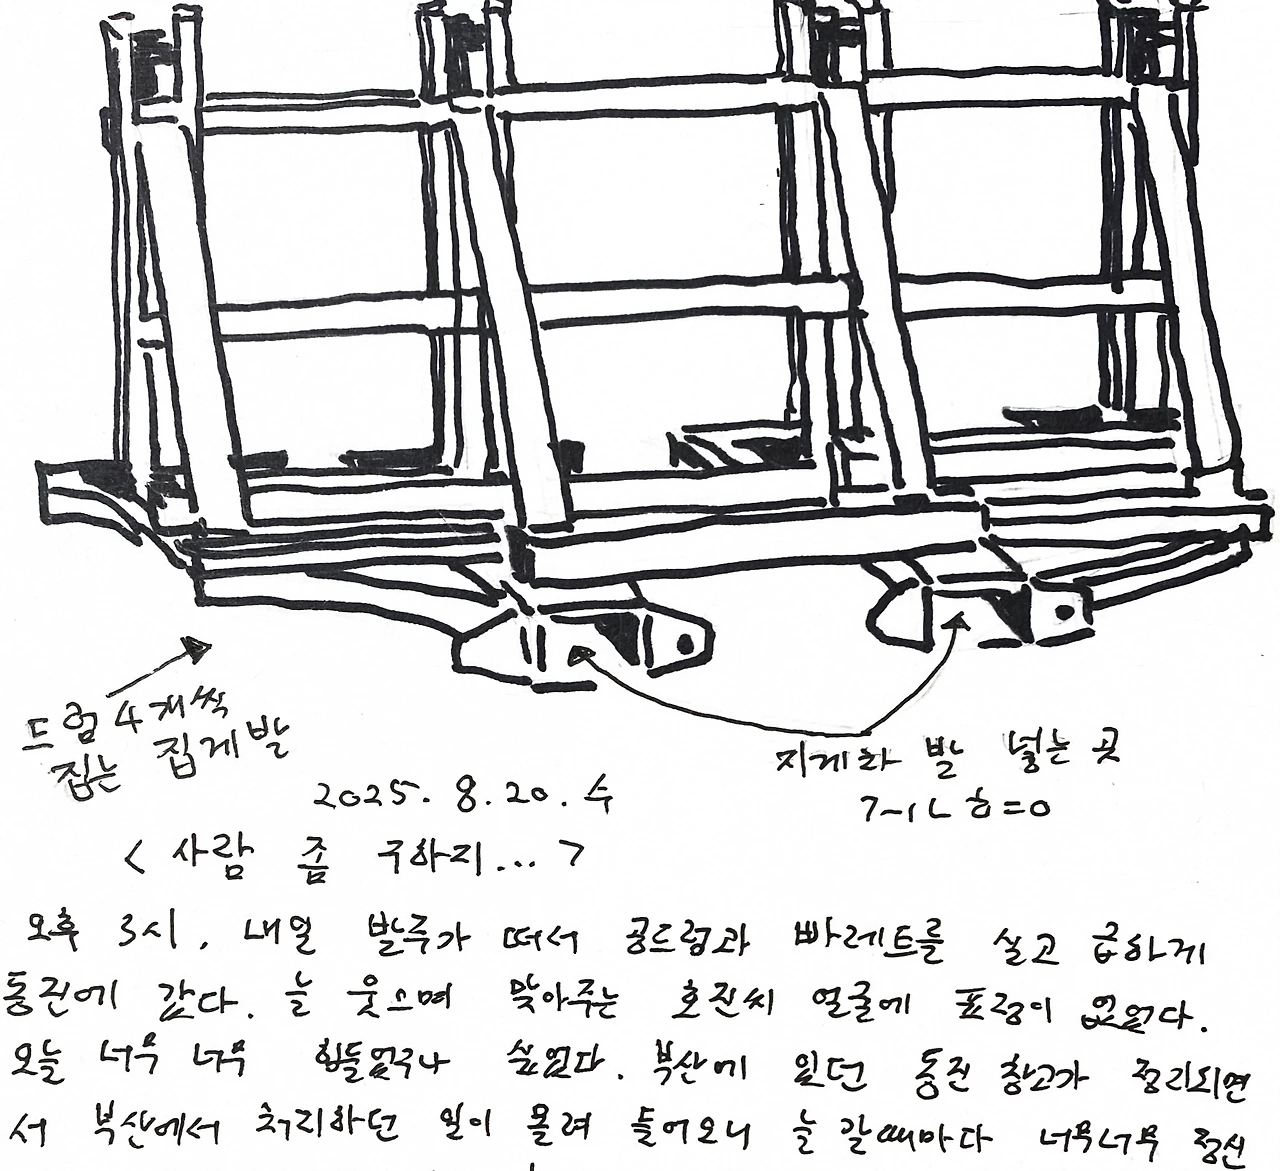 드럼 4개씩
집는 집게발
지게차 발 넣는 곳
2025. 8. 20. 수
< 사람 좀 구하지... >
오후 3시, 내일 발주가 떠서 공드럼과 빠레트를 싣고 급하게
통진에 갔다. 늘 웃으며 맞아주는 호진씨 얼굴에 표정이 없었다.
오늘 너무 너무 힘들었구나 싶었다. 부산에 있던 통진 창고가 정리되면
서 부산에서 처리하던 일이 몰려 들어오니 늘 갈때마다 너무너무 정신